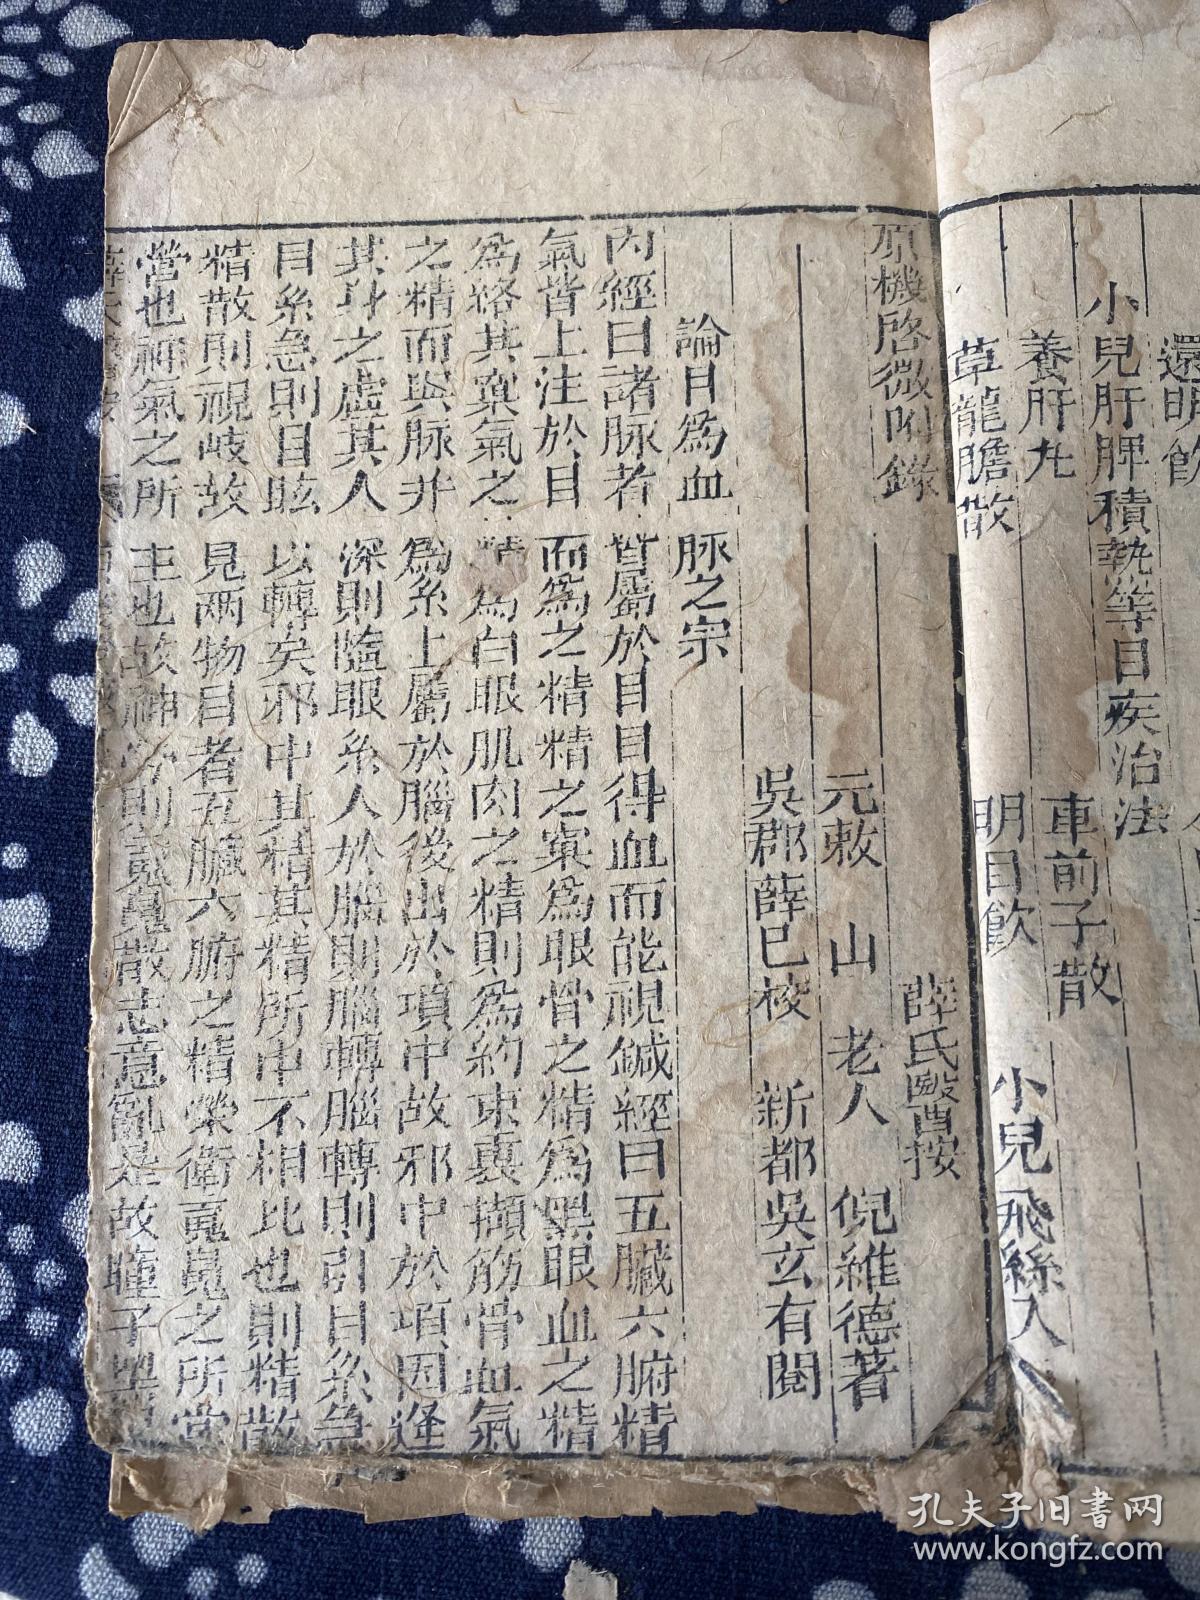 還明飲
小兒肝脾積熱等目疾治法
養肝丸 車前子散
草龍膽散 明目飲 小兒飛絲入
原機啓微附錄 薛氏醫按
元敕山老人 倪維德著
吳郡薛已校 新都吳玄有閱
論目爲血脉之宗
內經曰諸脉者皆屬於目目得血而能視鍼經曰五臟六腑精
氣皆上注於目而爲之精精之窠爲眼骨之精爲黑眼血之精
爲絡其窠氣之精爲白眼肌肉之精則爲約束裹擷筋骨血氣
之精而與脉并爲系上屬於腦後出於項中故邪中於項因逢
其身之虛其人深則隨眼系入於腦則腦轉腦轉則引目系急
目系急則目眩以轉矣邪中其精其精所中不相比也則精散
精散則視岐故見兩物目者五臟六腑之精榮衛䰟魄之所常
營也神氣之所主也故神勞則䰟魄散志意亂是故瞳子黑
孔夫子旧書网
www.kongfz.com